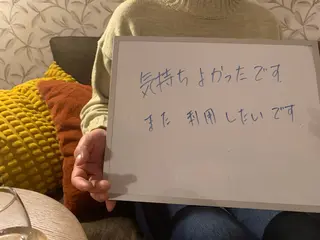 気持ちよかったです
また利用したいです